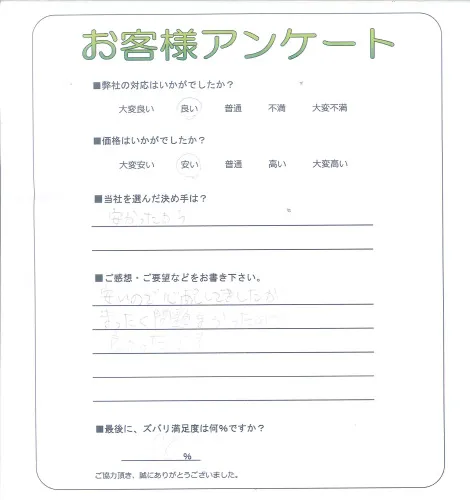 お客様アンケート
■弊社の対応はいかがでしたか？
大変良い 良い 普通 不満 大変不満
■価格はいかがでしたか？
大変安い 安い 普通 高い 大変高い
■当社を選んだ決め手は？
安かったから
■ご感想・ご要望などをお書き下さい。
安いので心配してましたが
まったく問題なかったので
良かったです
■最後に、ズバリ満足度は何%ですか？
%
ご協力頂き、誠にありがとうございました。